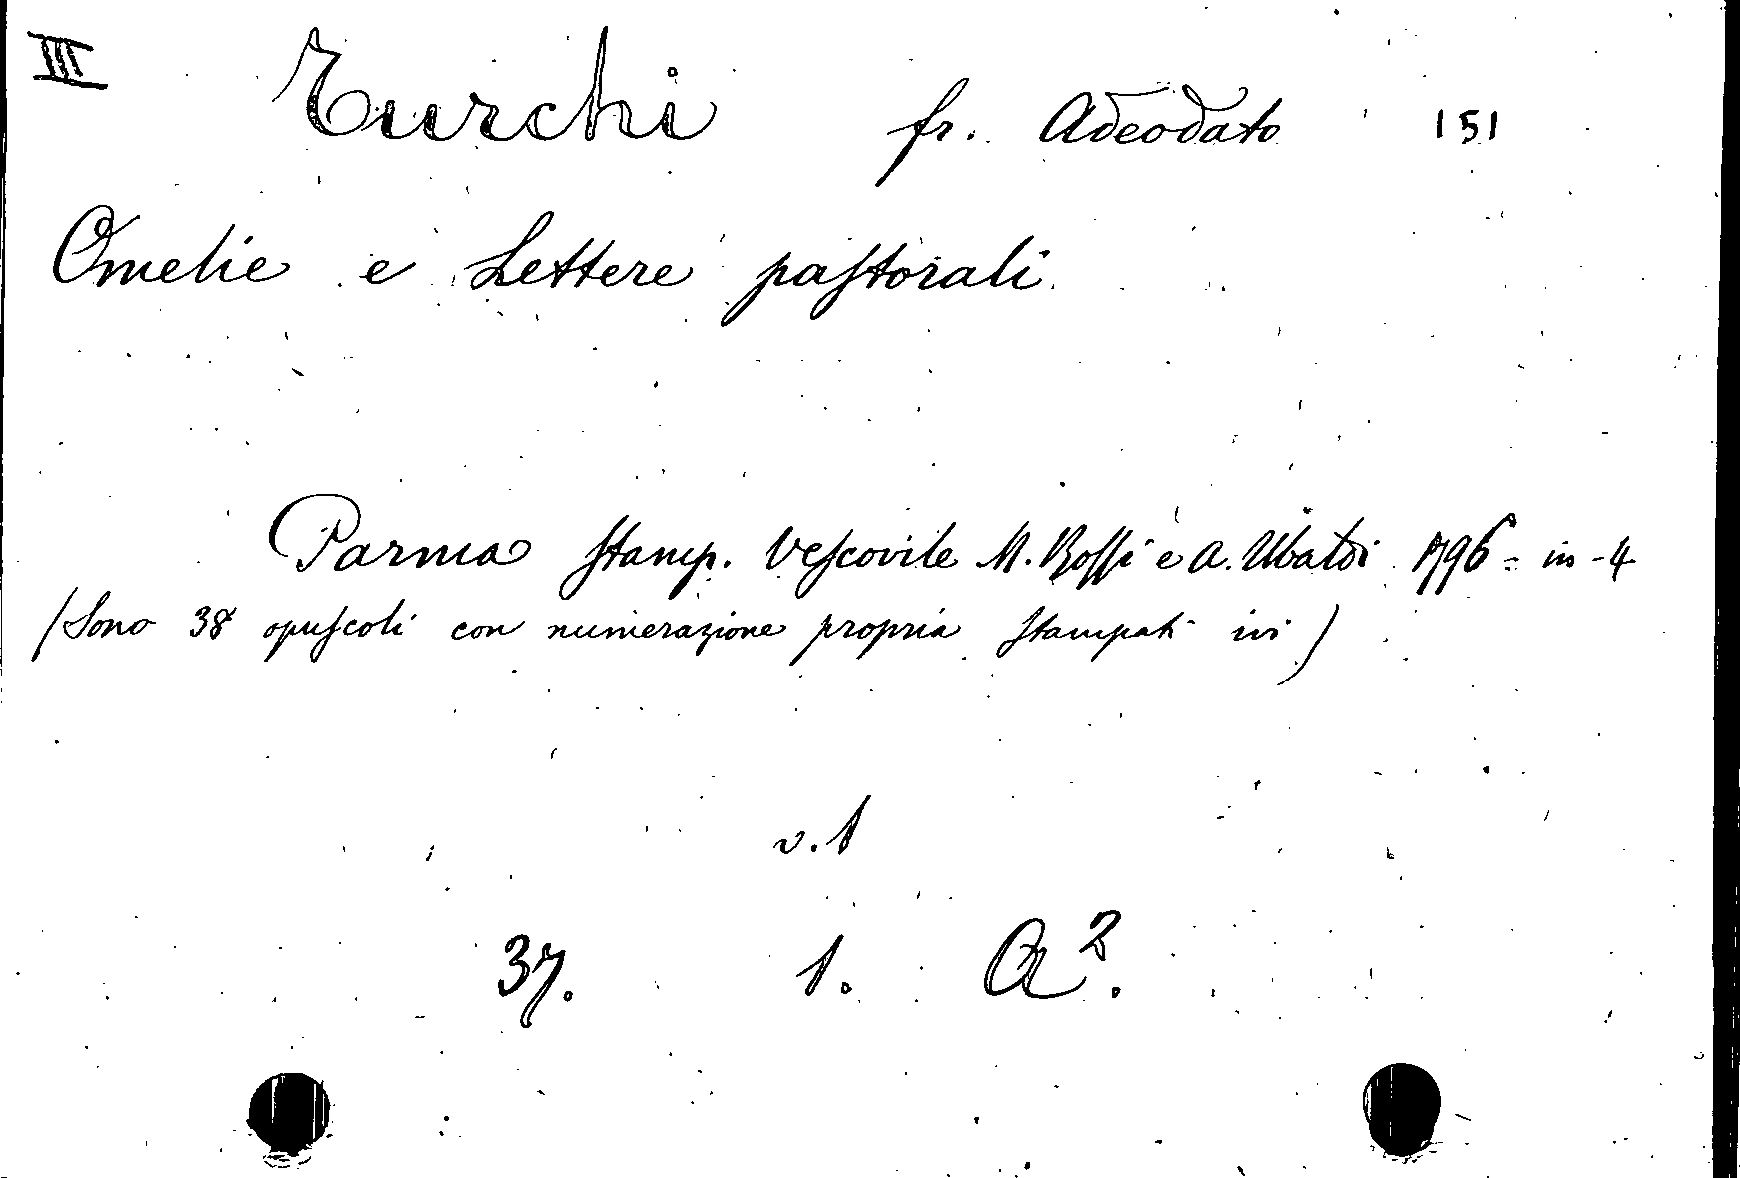 III Turchi fr. Adeodato 151
Omelie e Lettere pastorali
Parma Stamp. Vescovile M. Rossi e A. Ubaldi 1796 = in-4
(Sono 38 opuscoli con numerazione propria stampati ivi)
v.1
37. 1. A².